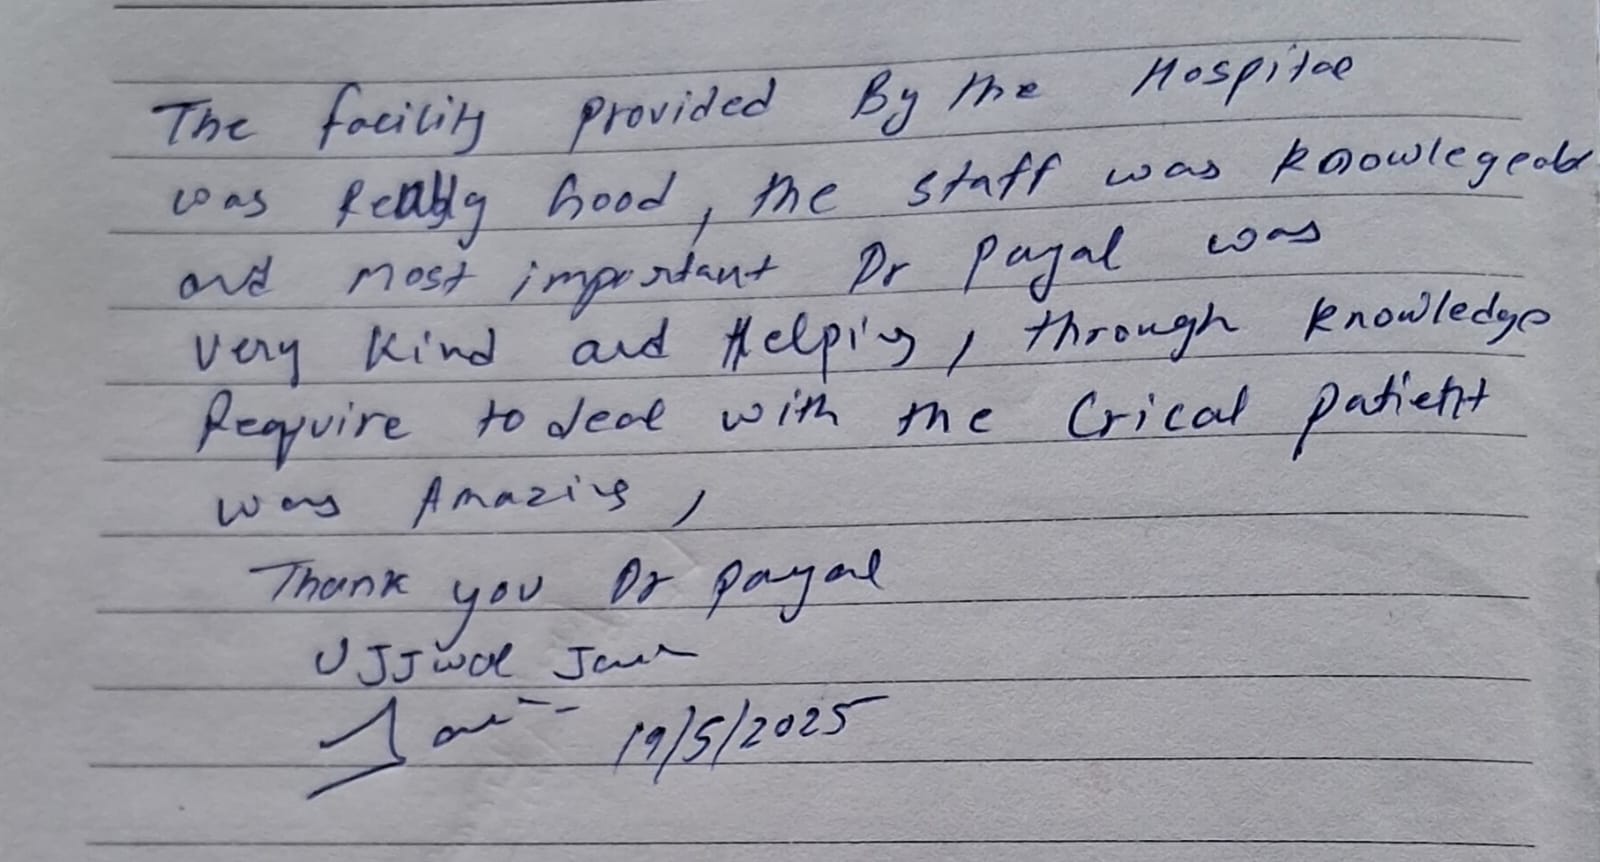 The facility provided By the Hospital
was Really Good, the staff was knowlegeabl
and most important Dr Payal was
very Kind and Helping, through knowledge
Require to deal with the Crical patient
was Amazing,
Thank you Dr payal
UJJwal Jain
Jain 19/5/2025